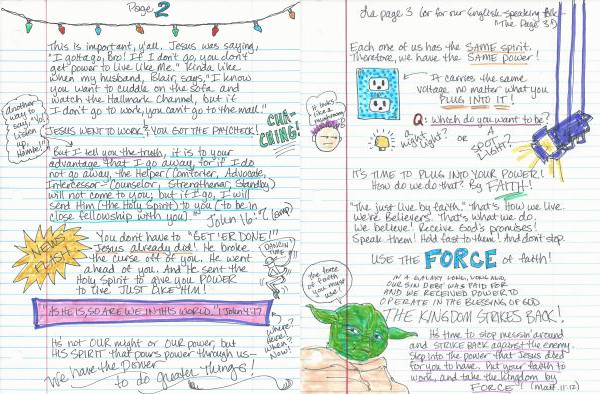 Page 2
This is important, y'all. Jesus was saying,
"I gotta go, Bro! If I don't go, you don't
get power to Live Like Me." Kinda like
when my husband, Blair, says, "I know
you want to cuddle on the sofa and
watch the Hallmark Channel, but if
I don't go to work, you can't go to the mall."
another way to say, "Yo! Listen up, Homie!"
JESUS WENT TO WORK & YOU GOT THE PAYCHECK!
CHA-CHING!
But I tell you the truth, it is to your
advantage that I go away, for if I do
not go away, the Helper (Comforter, Advocate,
Intercessor-Counselor, Strengthener, Standby)
will not come to you; but if I go, I will
send Him (the Holy Spirit) to you (to be in
close fellowship with you)" John 16:7 (amp)
NEWS FLASH!
You don't have to "GET 'ER DONE!"
Jesus already did! He broke
the curse off of you. He went
ahead of you. And He sent the
Holy Spirit to give you POWER
to live JUST LIKE HIM!
DANCIN' TIME
"AS HE IS, SO ARE WE IN THIS WORLD." 1 John 4:17
where? Here! When? Now!
It's not OUR might or OUR power, but
HIS SPIRIT that pours power through us—
We have the Power
to do Greater Things!
da page 3 (or for our English-speaking folk—
"The Page 3")
Each one of us has the SAME spirit.
Therefore, we have the SAME power!
It carries the same
voltage no matter what you
PLUG INTO IT!
It looks like a mushroom
Q: Which do you want to be?
a night light? OR A SPOT-LIGHT?
IT'S TIME TO PLUG INTO YOUR POWER!
How do we do that? By FAITH!
"The just live by faith." That's How we live.
We're Believers. That's what we do.
We believe! Receive God's promises!
Speak them! Hold fast to them! And don't stop.
USE THE FORCE of faith!
the force of faith you must use!
IN A GALAXY LONG, LONG AGO,
OUR SIN DEBT WAS PAID FOR
AND WE RECEIVED POWER TO
OPERATE IN THE BLESSING OF GOD
THE KINGDOM STRIKES BACK!
It's time to stop messin' around
and STRIKE BACK against the enemy.
Step into the power that Jesus died
for you to have. Put your faith to
work, and take the kingdom by
FORCE! (Matt. 11:12)